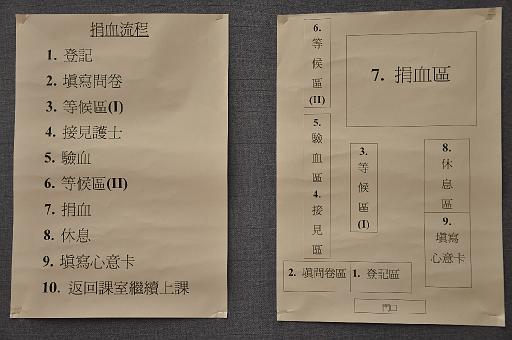 捐血流程
1. 登記
2. 填寫問卷
3. 等候區(I)
4. 接見護士
5. 驗血
6. 等候區(II)
7. 捐血
8. 休息
9. 填寫心意卡
10. 返回課室繼續上課
6. 等候區(II)
7. 捐血區
5. 驗血區
4. 接見區
3. 等候區(I)
8. 休息區
9. 填寫心意卡
2. 填問卷區
1. 登記區
門口